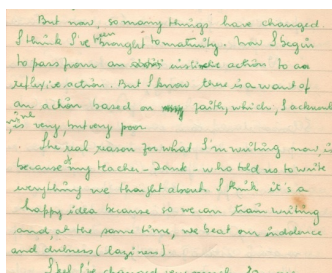 But now, so many things have changed
I think I've been brought to maturity. Now I begin
to pass from an instictive action to a
reflexive action. But I know there is a want of
an action based on my faith, which, I acknowl
is very but very poor
. The real reason for what I'm writing now, is
because of my teacher - Tank - who told us to write
everything we thought about. I think it's a
happy idea because so we can train writing
and, at the same time, we beat our indolence
and dulness (laziness)
I feel I've changed